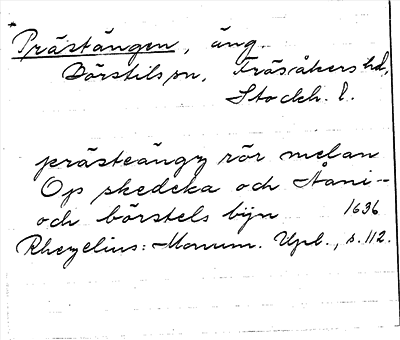 Prästängen, äng.
Börstils sn, Frösåkers hd,
Stockh. l.
prästeängz rör melan
Op skedeka och Åani-
och börstels bijn 1636
Rhezelius: Monum. Upl., s. 112.